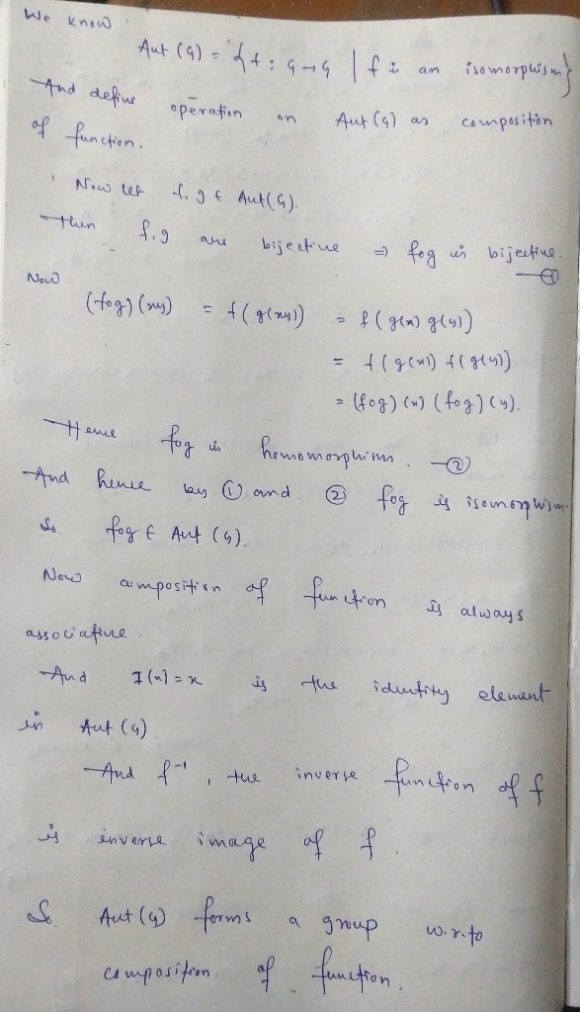 We know
Aut (G) = { f : G → G | f is an isomorphism}
And define operation on Aut (G) as composition
of function.
Now let f, g ∈ Aut(G).
Then f, g are bijective ⇒ fog is bijective.
—①
Now
(fog) (xy) = f( g(xy)) = f ( g(x) g(y))
= f ( g(x)) f(g(y))
= (fog) (x) (fog) (y).
Hence fog is homomorphism. —②
And hence by ① and ② fog is isomorphism.
So fog ∈ Aut (G).
Now composition of function is always
associative.
And I(x) = x is the identity element
in Aut (G).
And f⁻¹, the inverse function of f
is inverse image of f.
So Aut (G) forms a group w.r.to
composition of function.